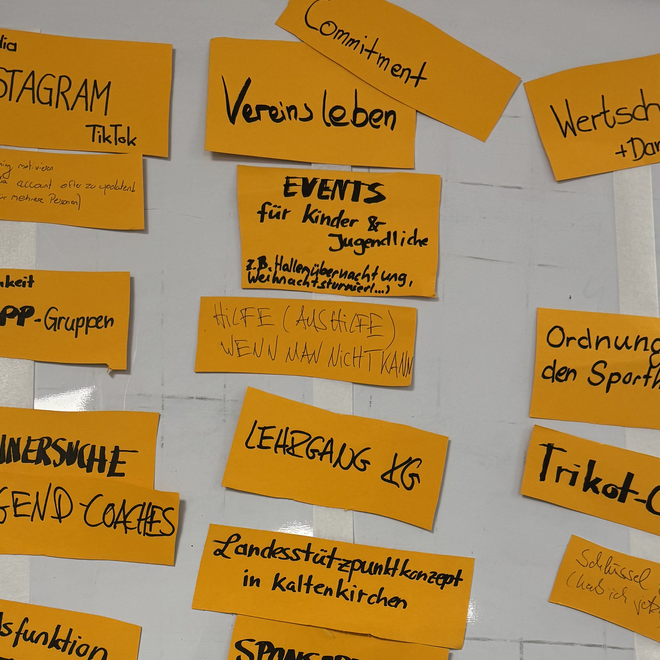 dia
STAGRAM
TikTok
motivieren
account öfter zu updaten!
für mehrere Personen)
hkeit
PP-Gruppen
INERSUCHE
GEND-COACHES
sfunktion
Commitment
Vereinsleben
EVENTS
für Kinder &
Jugendliche
z.B. Hallenübernachtung,
Weihnachtsturnier(...)
HILFE (AUSHILFE)
WENN MAN NICHT KANN
LEHRGANG KG
Landesstützpunktkonzept
in Kaltenkirchen
SPONSOR
Wertsch
+Dan
Ordnung
den Sporth
Trikot-
Schlüssel
(hab ich jetz